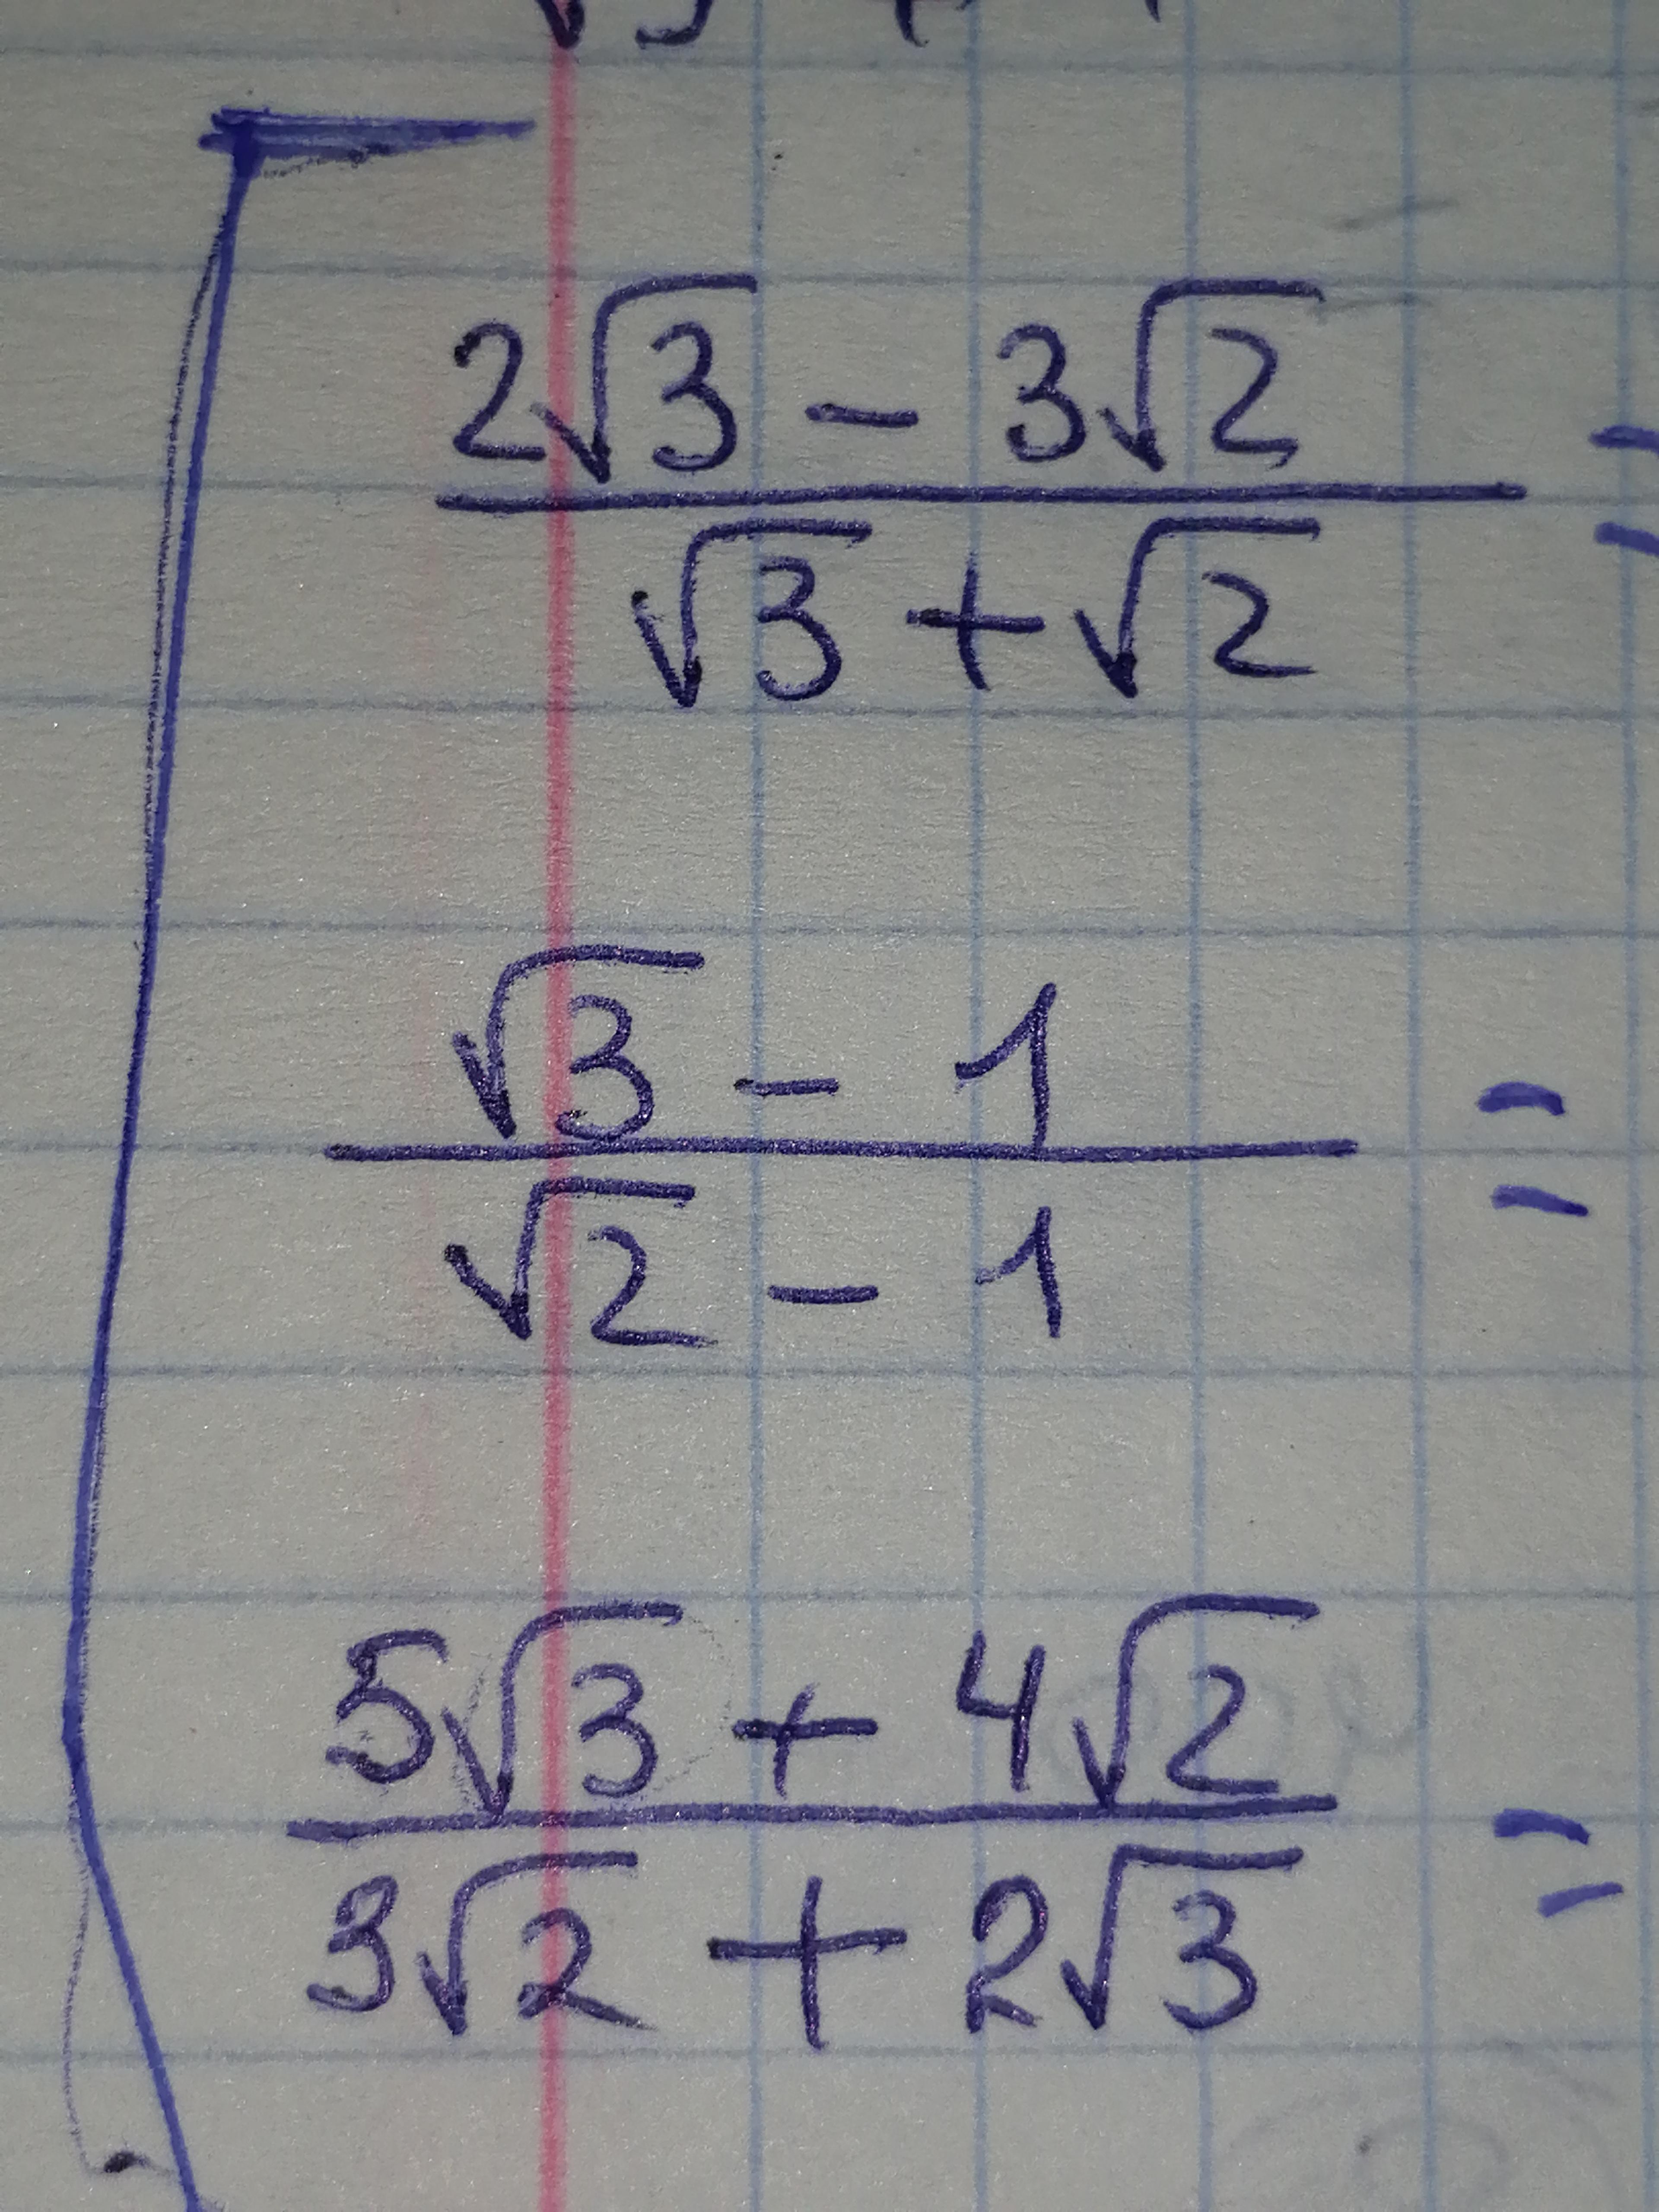 2√3 - 3√2 =
√3 + √2
√3 - 1 =
√2 - 1
5√3 + 4√2 =
3√2 + 2√3